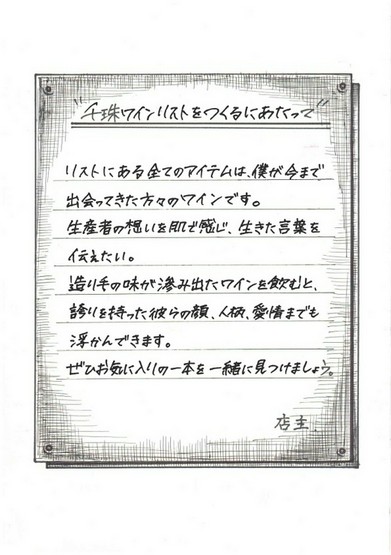 "千珠ワインリストをつくるにあたって"
リストにある全てのアイテムは、僕が今まで
出会ってきた方々のワインです。
生産者の想いを肌で感じ、生きた言葉を
伝えたい。
造り手の味が滲み出たワインを飲むと、
誇りを持った彼らの顔、人柄、愛情までも
浮かんできます。
ぜひお気に入りの一本を一緒に見つけましょう。
店主.